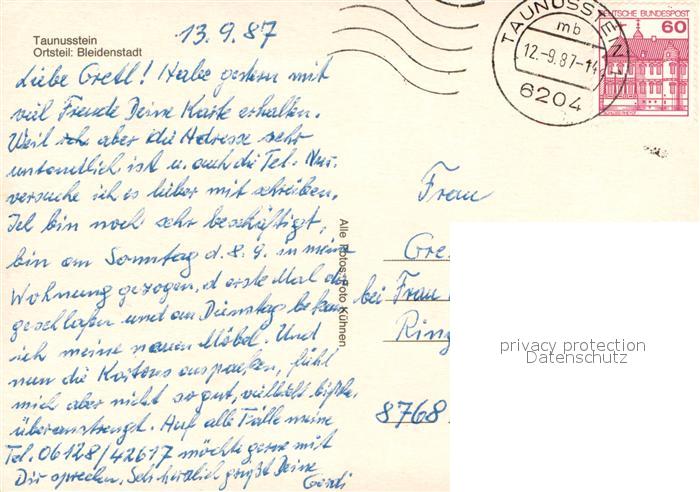 Taunusstein
Ortsteil: Bleidenstadt
13.9.87
Liebe Gretl! Habe gestern mit
viel Freude Deine Karte erhalten.
Weil ich aber die Adresse sehr
undeutlich ist u. auch die Tel. Nur.
versuche ich es lieber mit schreiben.
Ich bin noch sehr beschäftigt,
bin am Sonntag d. 8. 9. in meine
Wohnung gezogen, d erste Mal da
geschlafen und am Dienstag bekam
ich meine neuen Möbel. Und
nun die Kartons auspacken, fühl
mich aber nicht so gut, vielleicht bißche.
überanstrengt. Auf alle Fälle meine
Tel. 06128/42617 möchte gerne mit
Dir sprechen. Sehr herzlich grüßt Deine
Gerdi
Alle Fotos: Foto Kühnen
TAUNUSSTEIN 1
mb
12.-9.87-14
6204
DEUTSCHE BUNDESPOST
60
Frau
Gre
bei Frau
Ring
8768
privacy protection
Datenschutz